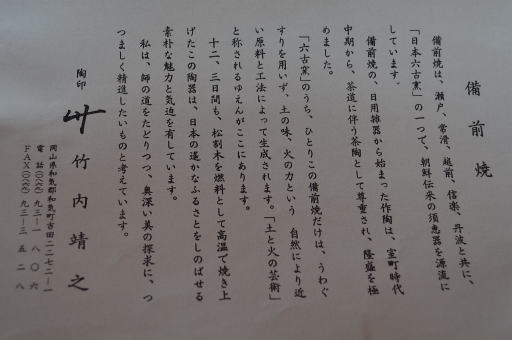 備前焼
備前焼は、瀬戸、常滑、越前、信楽、丹波と共に、
「日本六古窯」の一つで、朝鮮伝来の須恵器を源流に
しています。
備前焼の、日用雑器から始まった作陶は、室町時代
中期から、茶道に伴う茶陶として尊重され、隆盛を極
めました。
「六古窯」のうち、ひとりこの備前焼だけは、うわぐ
すりを用いず、土の味、火の力という 自然により近
い原料と工法によって生成されます。「土と火の芸術」
と称されるゆえんがここにあります。
十二、三日間も、松割木を燃料として高温で焼き上
げたこの陶器は、日本の遙かなふるさとをしのばせる
素朴な魅力と気迫を有しています。
私は、師の道をたどりつつ、奥深い美の探求に、つ
つましく精進したいものと考えています。
陶印
竹内靖之
岡山県和気郡和気町吉田二二七二−一
電話
九三−一八〇六
FAX
九三−三五二八